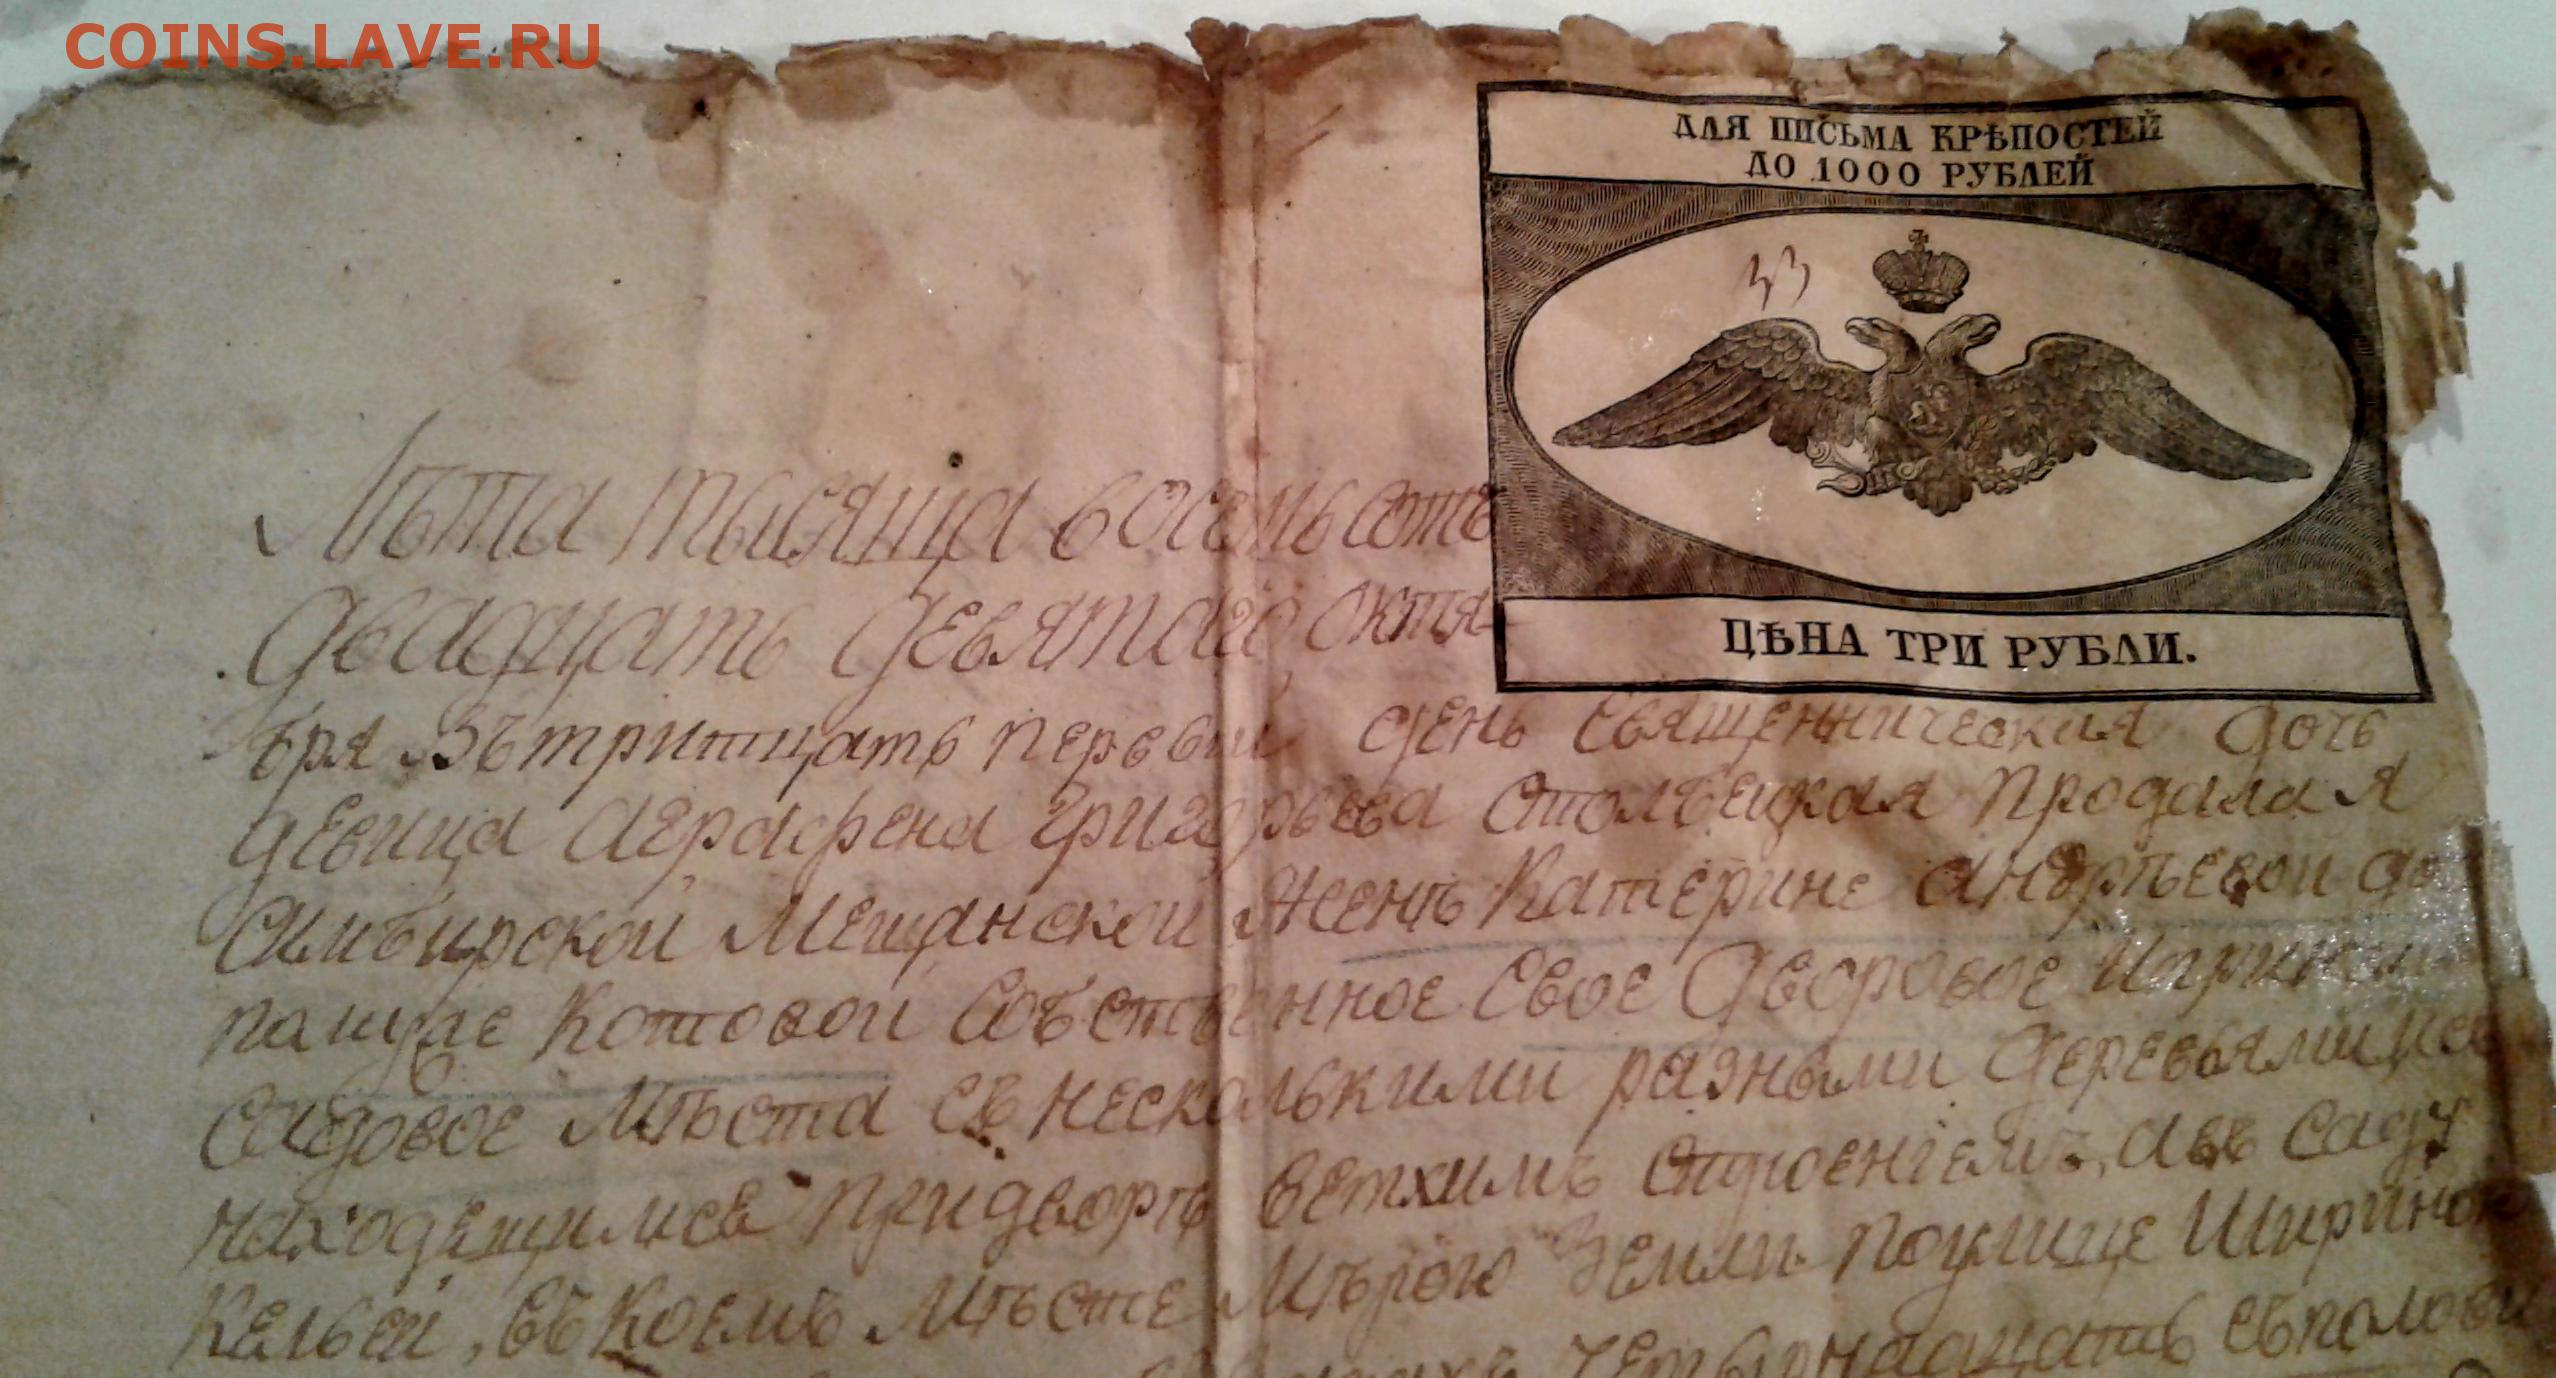 COINS.LAVE.RU
ДЛЯ ПИСЬМА КРѢПОСТЕЙ
ДО 1000 РУБЛЕЙ
33
ЦѢНА ТРИ РУБЛИ.
Лѣта тысяща восемьсотъ
двадцать девятаго октя-
бря въ тритцать первыи день священническая дочь
девица аграфена григорьева столбецкая продала я
симбирской мещанской женѣ Катерине андрѣевои до
польше Котовой собственное свое дворовое и при
садовое мѣста съ несколькими разными деревьями
находещимсе при дворѣ ветхимъ строениемъ, а въ саду
Кельей, въ коемъ мѣсте мѣрою земли по улице Ширино
четырнадцать съ полови